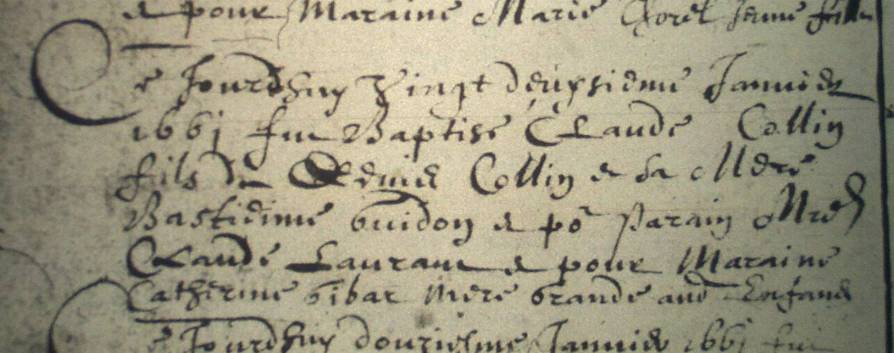 & pour Maraine Marie Jeune fille
Ce Jourdhuy Vingt deuxsieme Januier
1661 fut Baptise Claude Collin
fils de Denis Collin & sa Mere
Bastienne Guidon & po^r Parain
Claude Laurant & pour Maraine
Catherine Gibar Mere Grande aud Enfant
Ce Jourdhuy douziesme Januier 1661 fut